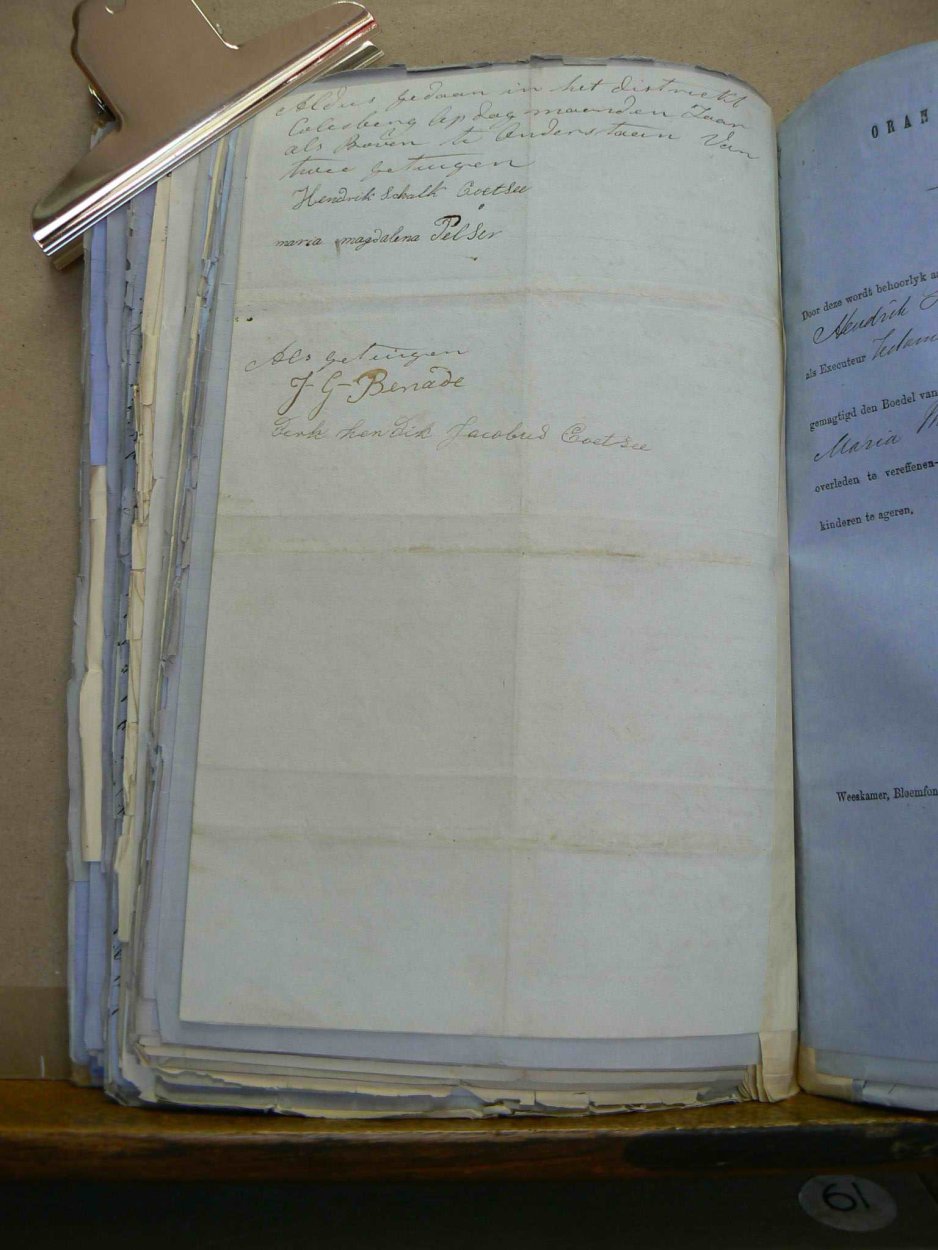 Aldus gedaan in het districkt
Colesberg op dag maanden Jaar
als Boven te Onderstaen Van
twee getuigen
Hendrik Schalk Coetsee
maria magdalena Pelser
Als getuigen
J-G-Benade
Derk hendik Jacobus Coetsee
ORAN
Door deze wordt behoorlyk a
Hendrik
als Executeur
gemagtigd den Boedel van
Maria
overleden te vereffenen-
kinderen te ageren,
Weeskamer, Bloemfon
61